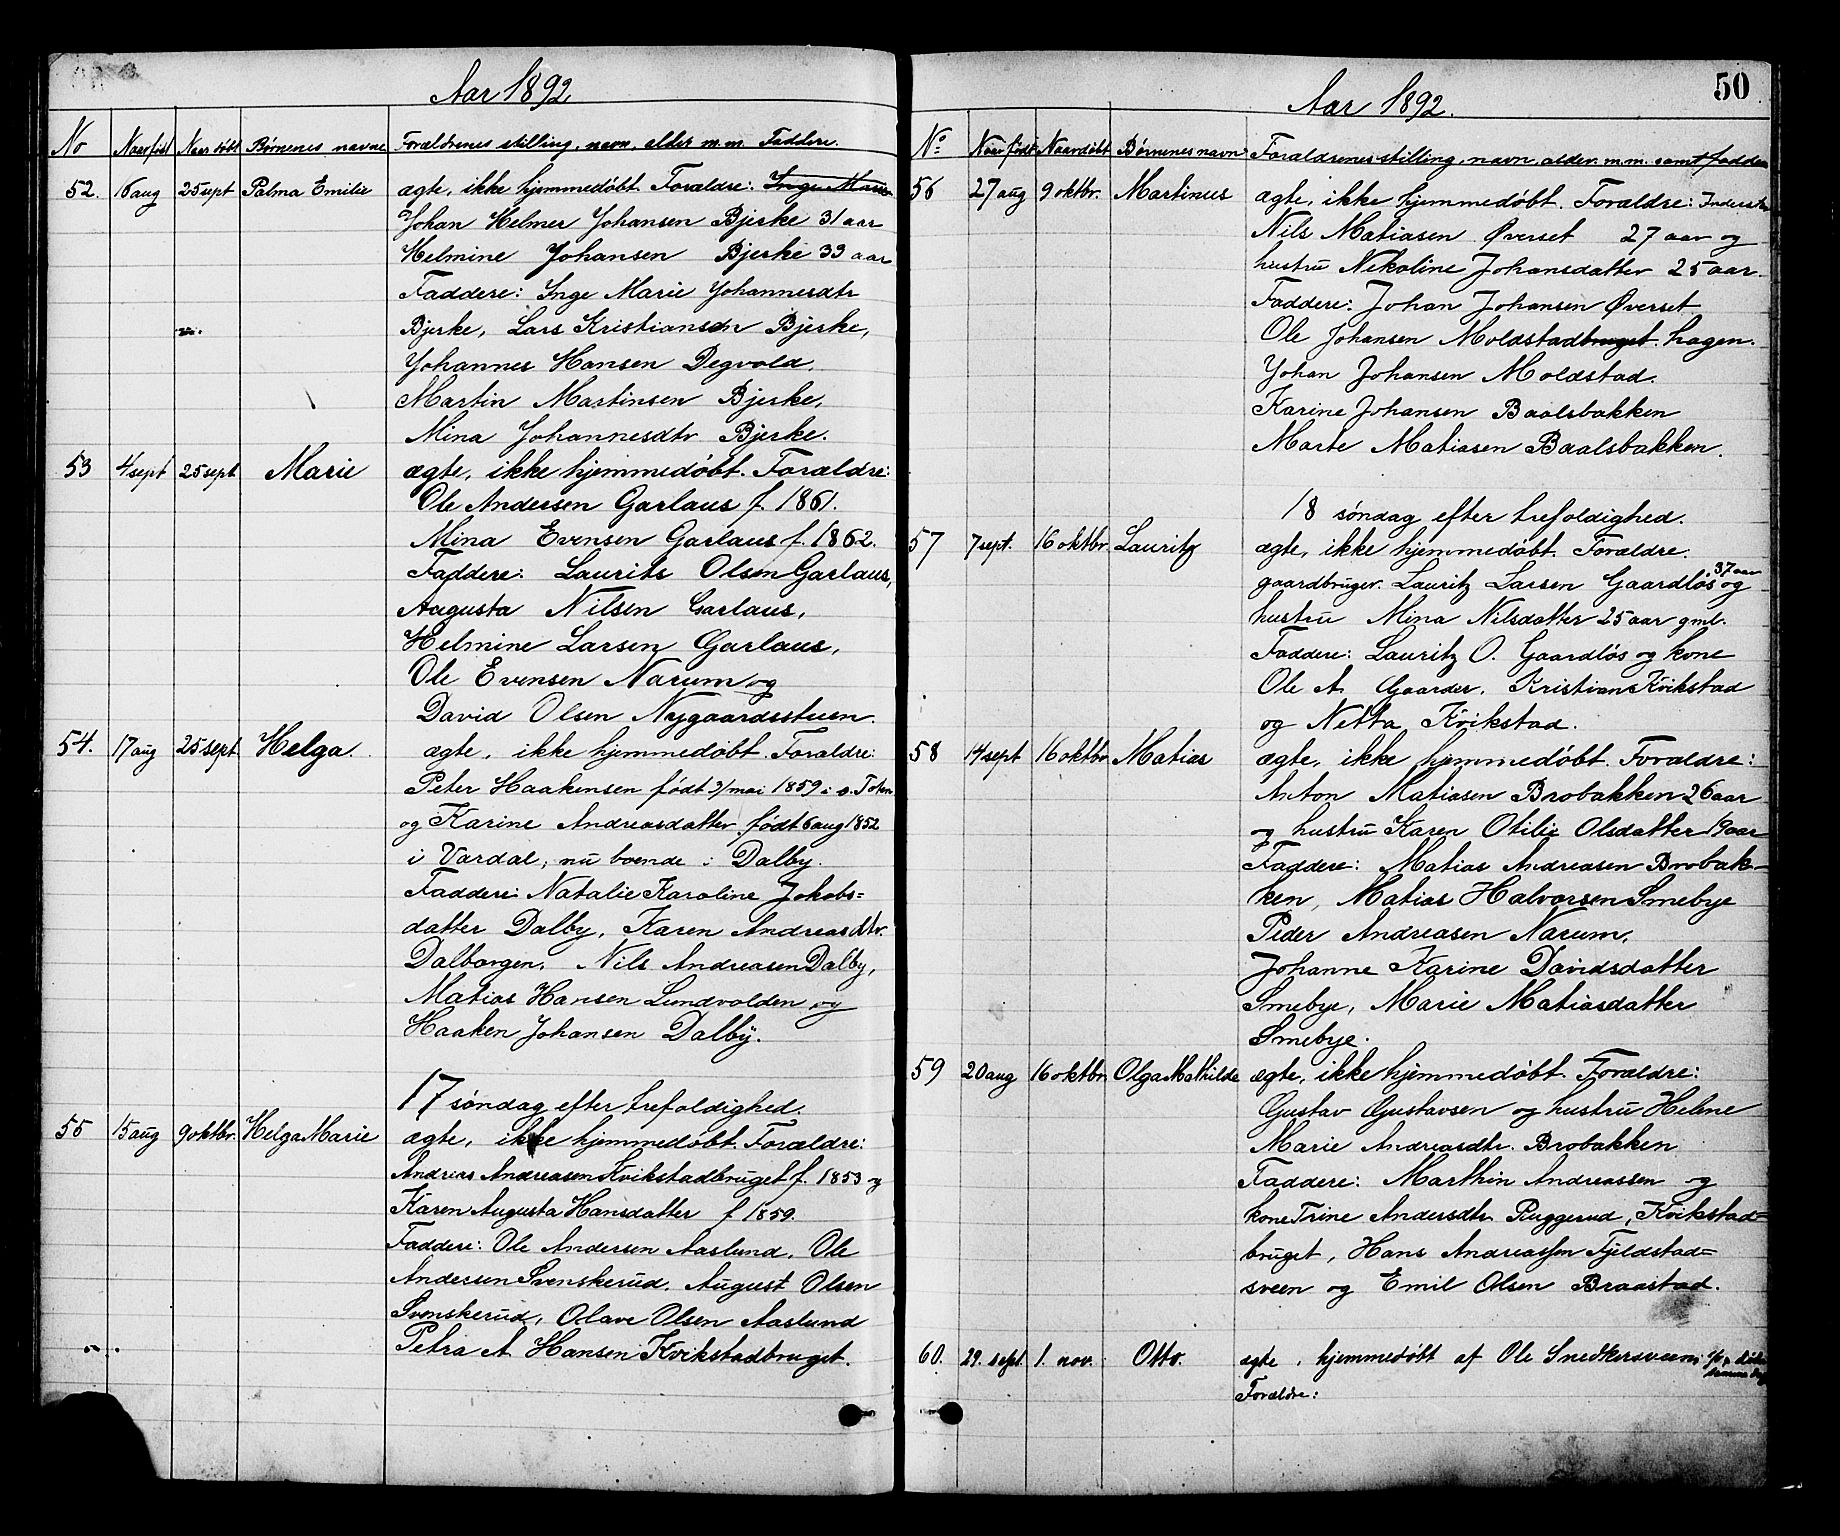 Aar 1892
No Naar født Naar døbt Børnenes navne Forældrenes stilling, navn, alder m.m. Faddere.
52. 16 aug 25 sept Palma Emilie ægte, ikke hjemmedøbt. Forældre: Inge Marie
Johan Helmer Johansen Bjerke 31 aar
Helmine Johansen Bjerke 33 aar
Faddere: Inge Marie Johannesdtr
Bjerke, Lars Kristiansen Bjerke,
Johannes Hansen Degvold,
Martin Martinsen Bjerke,
Mina Johannesdtr Bjerke.
53 4 sept 25 sept Marie ægte, ikke hjemmedøbt. Forældre:
Ole Andersen Garlaus f. 1861.
Mina Evensen Garlaus f. 1862.
Faddere: Laurits Olsen Garlaus,
Augusta Nilsen Garlaus,
Helmine Larsen Garlaus,
Ole Evensen Narum og
David Olsen Nygaardsstuen.
54. 17 aug 25 sept Helga. ægte, ikke hjemmedøbt. Forældre:
Peter Haakensen født 3/mai 1859 i ø. Toten
og Karine Andreasdatter født 6 aug 1852
i Vardal, nu boende i Dalby.
Faddere: Natalie Karoline Jakobs=
datter Dalby, Karen Andreasdtr.
Dalborgen, Nils Andreasen Dalby,
Matias Hansen Lundvolden og
Haaken Johansen Dalby.
17 søndag efter trefoldighed.
55 15 aug 9 oktbr. Helga Marie ægte, ikke hjemmedøbt. Forældre:
Andreas Andreasen Kvikstadbruget f. 1853 og
Karen Augusta Hansdatter f 1859.
Faddere: Ole Andersen Aaslund, Ole
Andersen Svenskerud, August Olsen
Svenskerud, Olave Olsen Aaslund
Petra A. Hansen Kvikstadbruget.
50
Aar 1892.
No Naar født Naar døbt Børnenes navn Forældrenes stilling, navn, alder m.m. samt fadder
56 27 aug 9 oktbr. Martinus ægte, ikke hjemmedøbt. Forældre: Inderst
Nils Matiasen Øverset 27 aar og
hustru Nekoline Johansdatter 25 aar.
Faddere: Johan Johansen Øverset
Ole Johansen Moldstadbruget hagen.
Johan Johansen Moldstad.
Karine Johansen Baalsbakken
Marte Matiasen Baalsbakken.
18 søndag efter trefoldighed.
57 7 sept. 16 oktbr Lauritz ægte, ikke hjemmedøbt. Forældre.
gaardbruger. Lauritz Larsen Gaardløs 37 aar og
hustru Mina Nilsdatter 25 aar gml.
Faddere: Lauritz O. Gaardløs og kone
Ole A. Gaarder, Kristians Kvikstad
og Netta Kvikstad.
58 14 sept 16 oktbr Matias ægte, ikke hjemmedøbt. Forældre:
Anton Matiasen Brobakken 26 aar
og hustru Karen Otilie Olsdatter 19 aar
Faddere: Matias Andreasen Brobak-
ken, Matias Halvorsen Smebye
Peder Andreasen Narum,
Johanne Karine Davidsdatter
Smebye, Marie Matiasdatter
Smebye.
59 20 aug 16 oktbr Olga Mathilde ægte, ikke hjemmedøbt. Forældre:
Gustav Gustavsen og hustru Helene
Marie Andreasdtr. Brobakken
Faddere: Marthin Andreassen og
kone Trine Andersdtr Ruggerud, Kvikstad=
bruget, Hans Andreassen Fjeldstad=
sveen og Emil Olsen Braastad.
60. 29. sept. 1. nov. Otto. ægte, hjemmedøbt af Ole Snedkersveen;
Forældre: